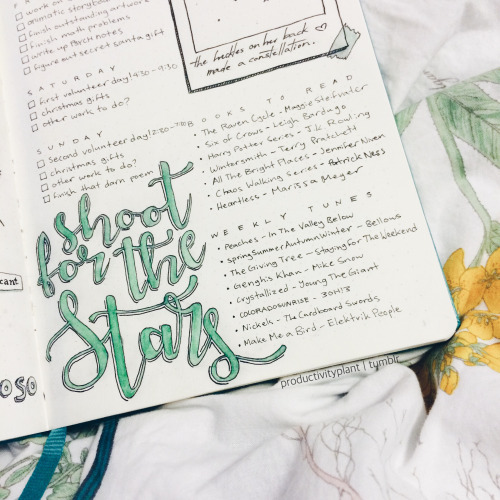 work on
animatic storyboard
finish outstanding artwork
finish math problems
write up notes
figure out secret santa gift
SATURDAY
first volunteer day! 4:30 - 9:30
christmas gifts
other work to do?
SUNDAY
second volunteer day!
christmas gifts
other work to do?
finish that darn poem
shoot
for the
Stars
the freckles on her back
made a constellation.
BOOKS TO READ
The Raven Cycle - Maggie Stiefvater
Six of Crows - Leigh Bardugo
Harry Potter Series - J.K. Rowling
Wintersmith - Terry Pratchett
All The Bright Places - Jennifer Niven
Chaos Walking Series - Patrick Ness
Heartless - Marissa Meyer
WEEKLY TUNES
Peaches - In The Valley Below
springSummerAutumnWinter - Bellows
The Giving Tree - Staying For The Weekend
Genghis Khan - Miike Snow
Crystallized - Young The Giant
COLORADOSUNRISE - 3OH!3
Nickels - The Cardboard Swords
Make Me a Bird - Elektrik People
productivityplant | tumblr